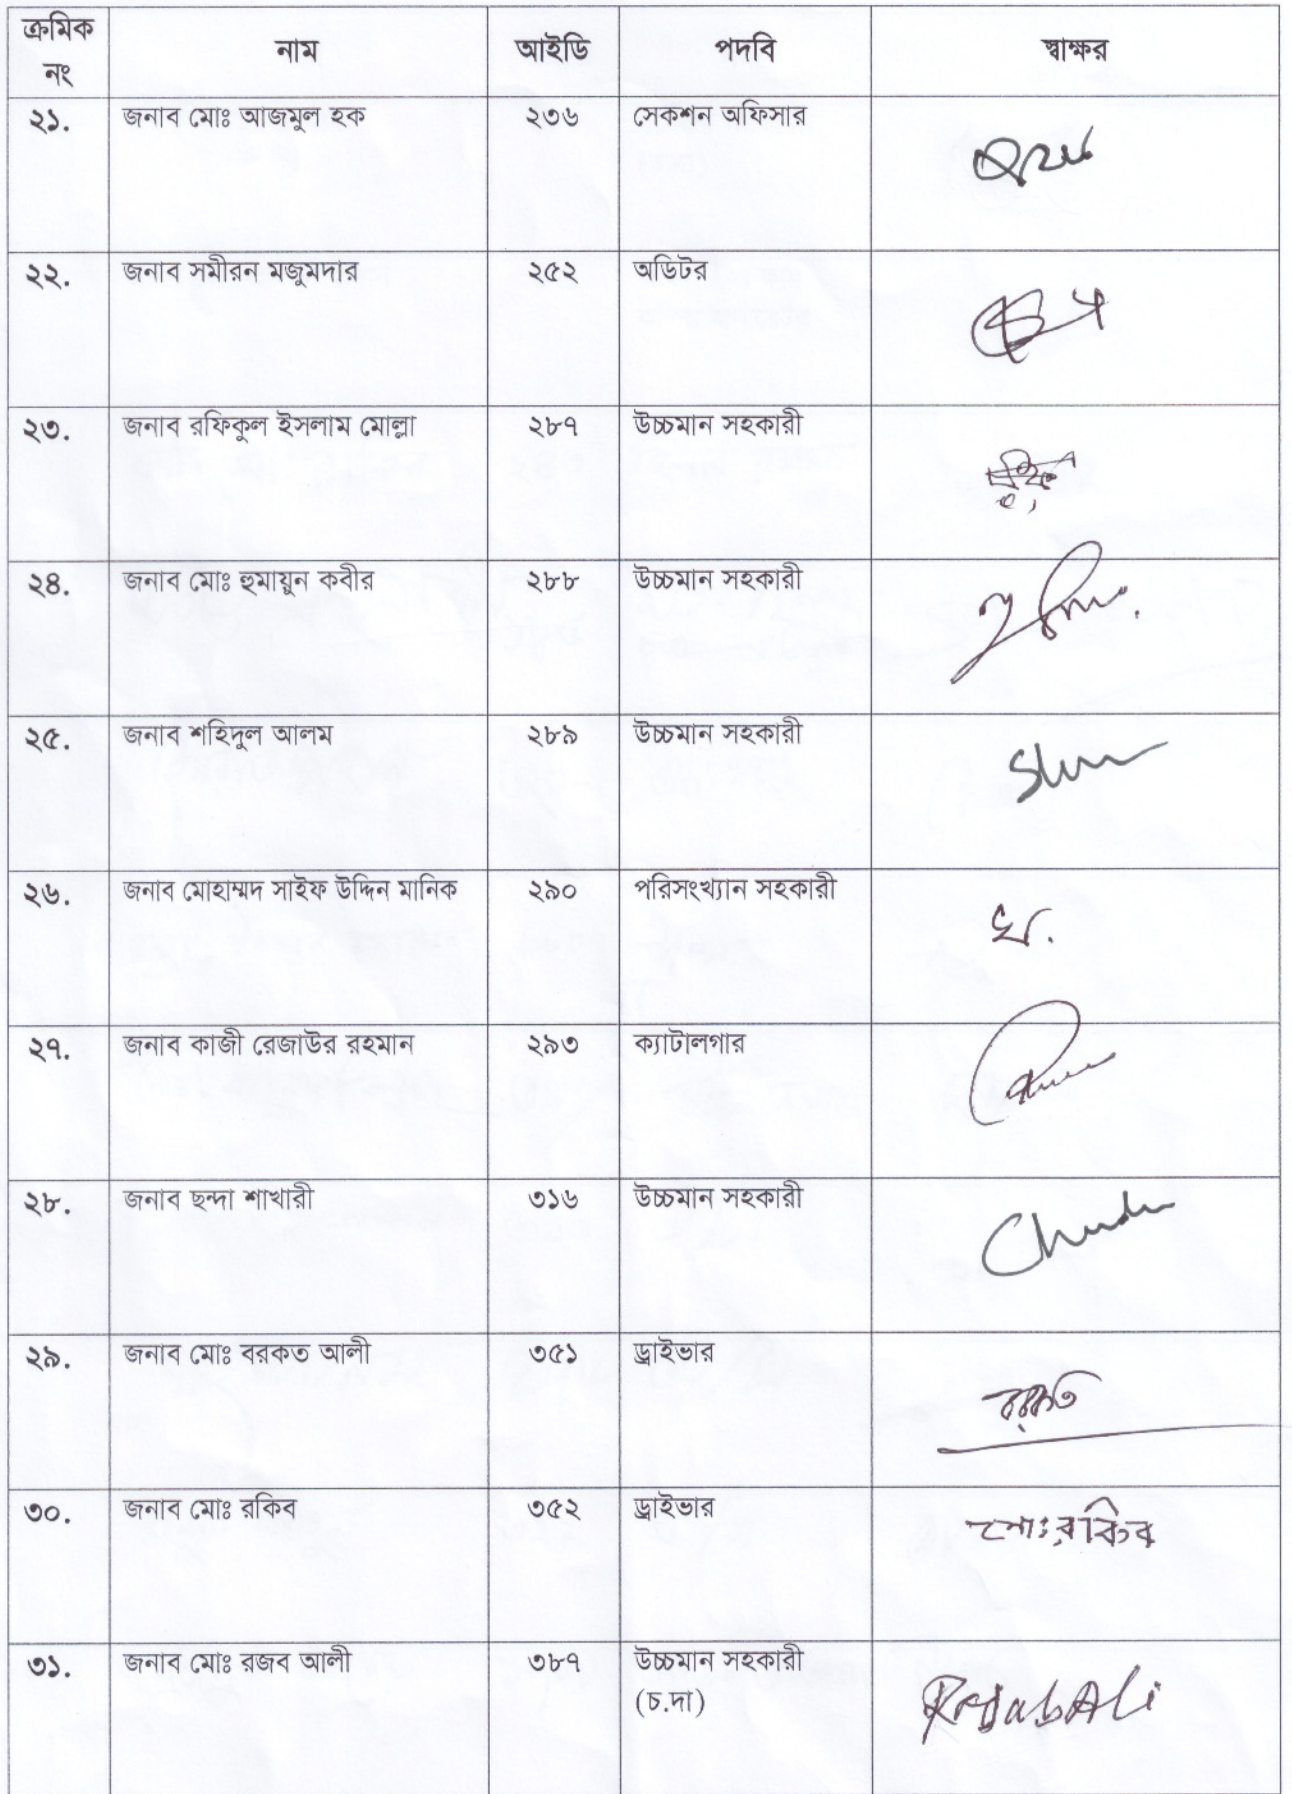 ক্রমিক নং নাম আইডি পদবি স্বাক্ষর
২১. জনাব মোঃ আজমুল হক ২৩৬ সেকশন অফিসার
২২. জনাব সমীরন মজুমদার ২৫২ অডিটর
২৩. জনাব রফিকুল ইসলাম মোল্লা ২৮৭ উচ্চমান সহকারী
২৪. জনাব মোঃ হুমায়ুন কবীর ২৮৮ উচ্চমান সহকারী
২৫. জনাব শহিদুল আলম ২৮৯ উচ্চমান সহকারী
২৬. জনাব মোহাম্মদ সাইফ উদ্দিন মানিক ২৯০ পরিসংখ্যান সহকারী
২৭. জনাব কাজী রেজাউর রহমান ২৯৩ ক্যাটালগার
২৮. জনাব ছন্দা শাখারী ৩১৬ উচ্চমান সহকারী
২৯. জনাব মোঃ বরকত আলী ৩৫১ ড্রাইভার বরকত
৩০. জনাব মোঃ রকিব ৩৫২ ড্রাইভার মোঃ রকিব
৩১. জনাব মোঃ রজব আলী ৩৮৭ উচ্চমান সহকারী (চ.দা) Rajab Ali